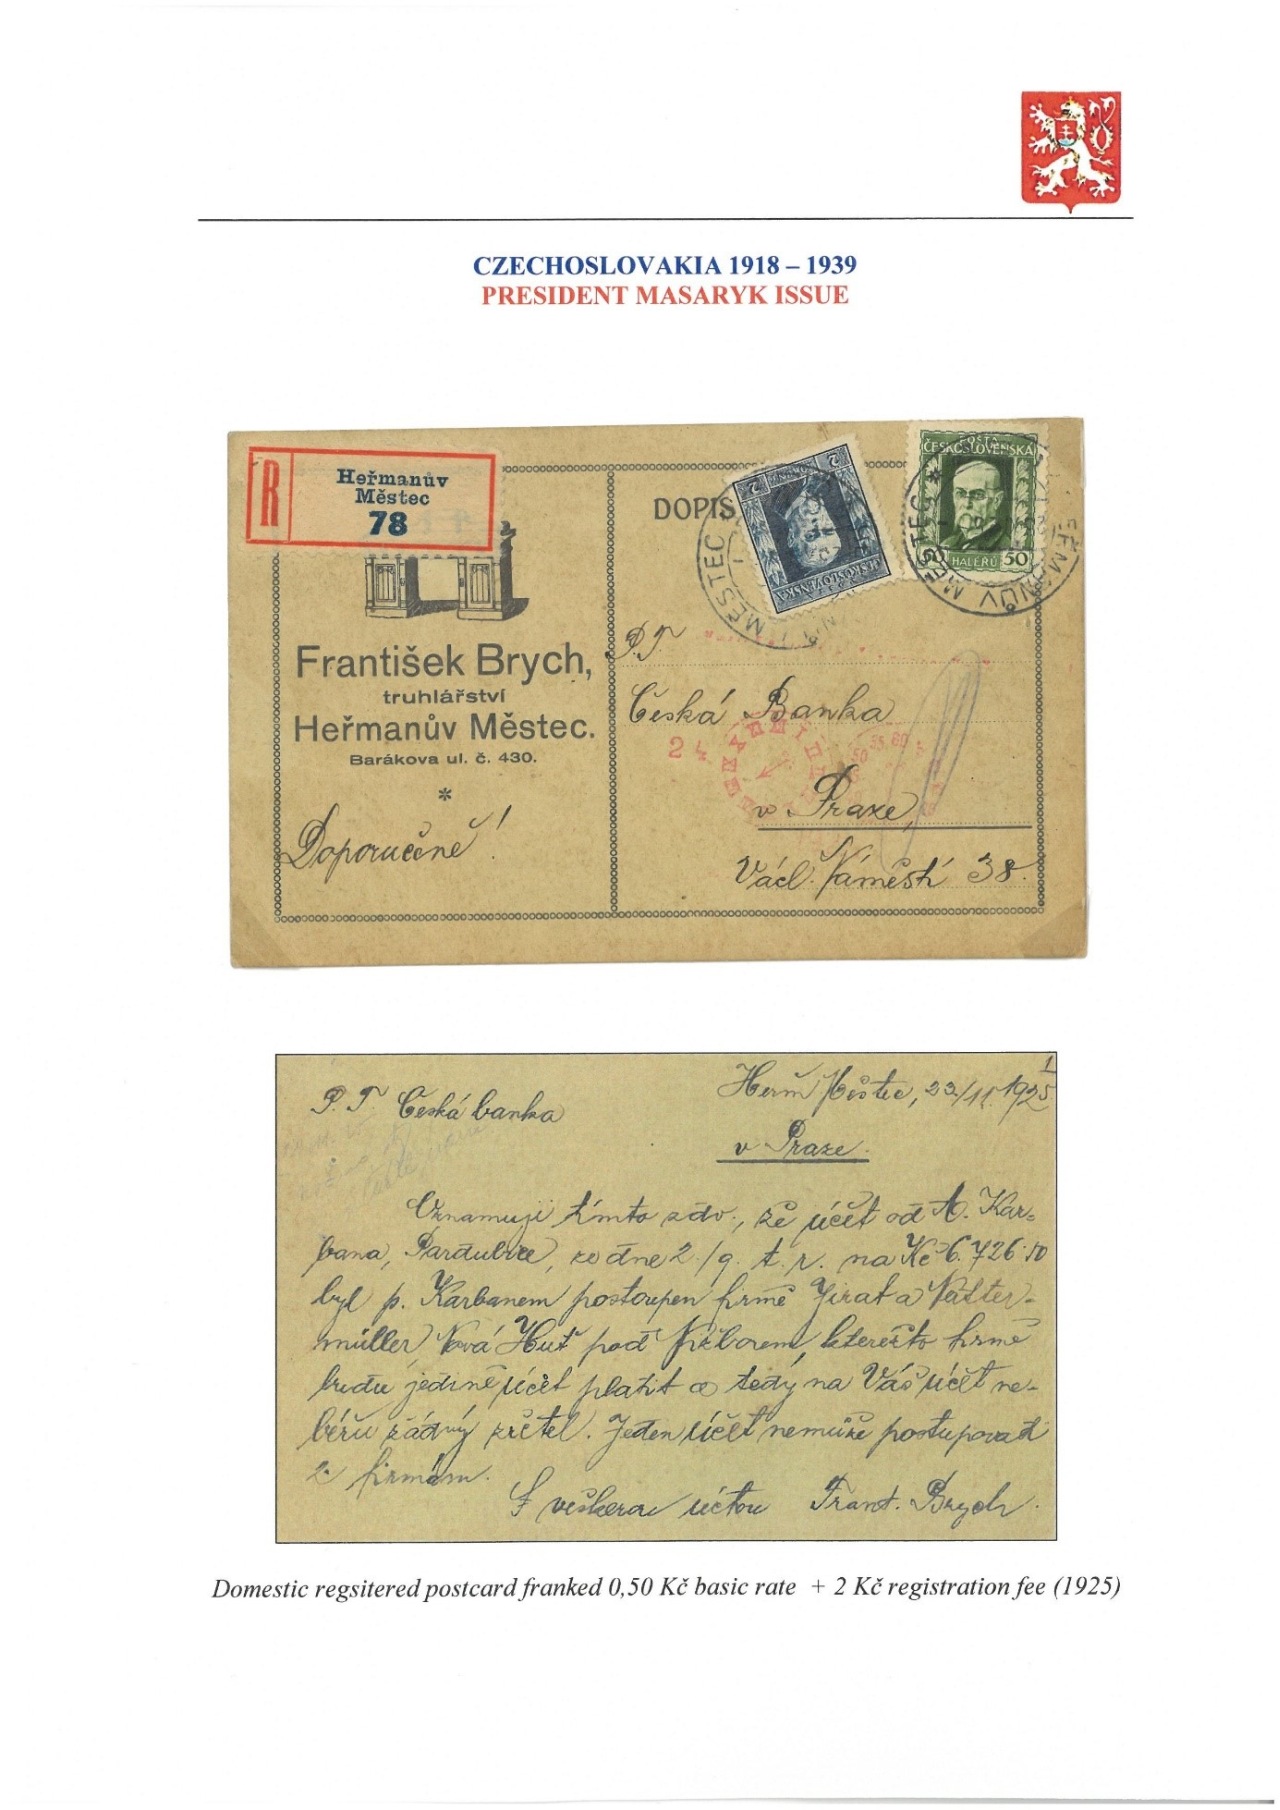 CZECHOSLOVAKIA 1918 – 1939
PRESIDENT MASARYK ISSUE
R
Heřmanův
Městec
78
DOPIS
2 2
ČESKOSLOVENSKÁ
POŠTA
ČESKOSLOVENSKÁ
50 HALÉŘŮ 50
MĚSTEC
HEŘMANŮV MĚSTEC *
František Brych,
truhlářství
Heřmanův Městec.
Barákova ul. č. 430.
*
Doporučeně!
P.T.
Česká Banka
24
50 55, 60
v Praze,
Václ. Náměstí 38.
1
Heřm Městec, 23/11. 1925
P. T. Česká banka
v Praze.
Oznamuji tímto zdv., že účet od A. Kar-
bana, Pardubice, ze dne 2./9. t. r. na Kč 6.726.50
byl p. Karbanem postoupen firmě Jirat a Natter-
müller Nová Huť pod Nižborem, kterežto firmě
budu jedině účet platit a tedy na Váš účet ne-
béřu žádný zřetel. Jeden účet nemůže postupovat
2 firmám.
S veškerou úctou Frant. Brych.
Domestic regsitered postcard franked 0,50 Kč basic rate + 2 Kč registration fee (1925)